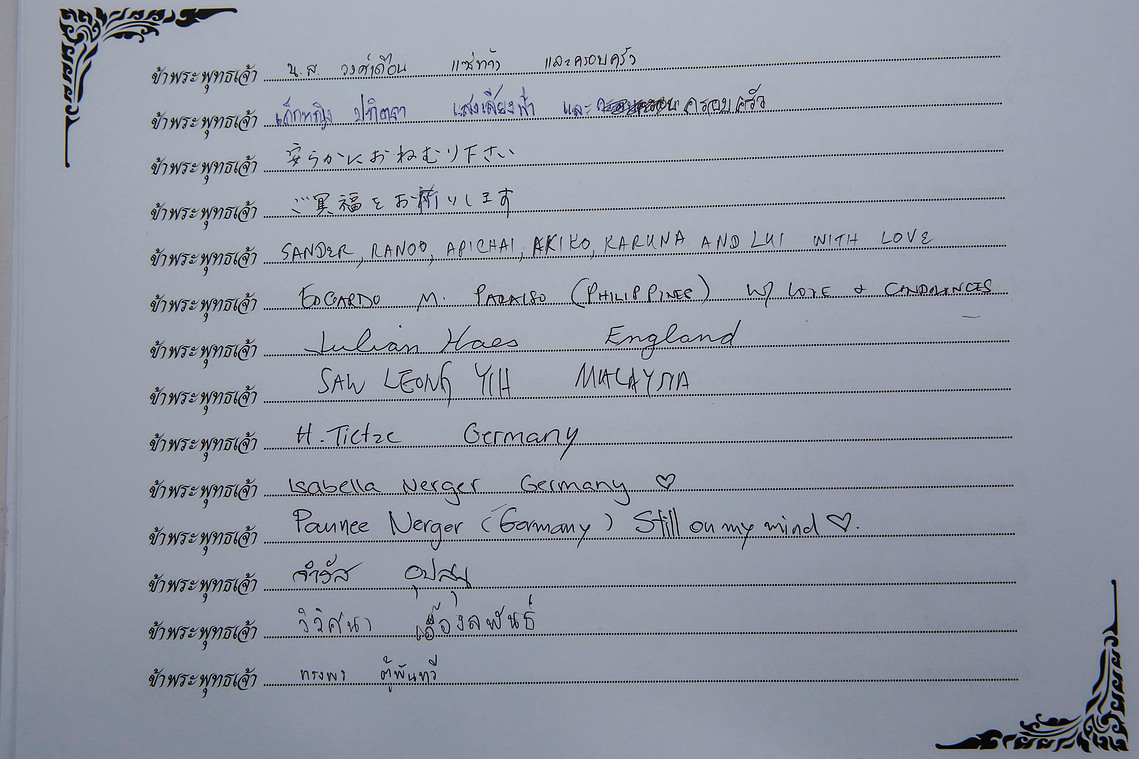 ข้าพระพุทธเจ้า น.ส. วงศ์เดือน แซ่ท้าว และครอบครัว
ข้าพระพุทธเจ้า เด็กหญิง ปทิตตา แสงเสียงฟ้า และ ครอบครัว
ข้าพระพุทธเจ้า 安らかにおねむり下さい
ข้าพระพุทธเจ้า ご冥福をお祈りします
ข้าพระพุทธเจ้า SANDER, RANOO, APICHAI, AKIKO, KARUNA AND LUI WITH LOVE
ข้าพระพุทธเจ้า EDGARDO M. PARAISO (PHILIPPINES) W/ LOVE & CONDOLENCES
ข้าพระพุทธเจ้า Julian Haes England
ข้าพระพุทธเจ้า SAW LEONG YIH MALAYSIA
ข้าพระพุทธเจ้า H. Tietze Germany
ข้าพระพุทธเจ้า Isabella Nerger Germany ♡
ข้าพระพุทธเจ้า Pannee Nerger (Germany) Still on my mind ♡.
ข้าพระพุทธเจ้า
ข้าพระพุทธเจ้า วิวิศนา
ข้าพระพุทธเจ้า ทรงพา ตู้พันทวี